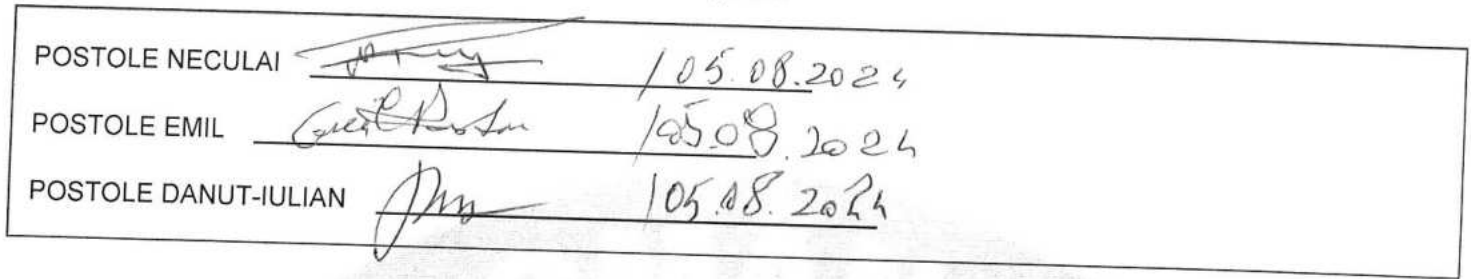 POSTOLE NECULAI / 05.08.2024
POSTOLE EMIL /05.08.2024
POSTOLE DANUT-IULIAN /05.08.2024